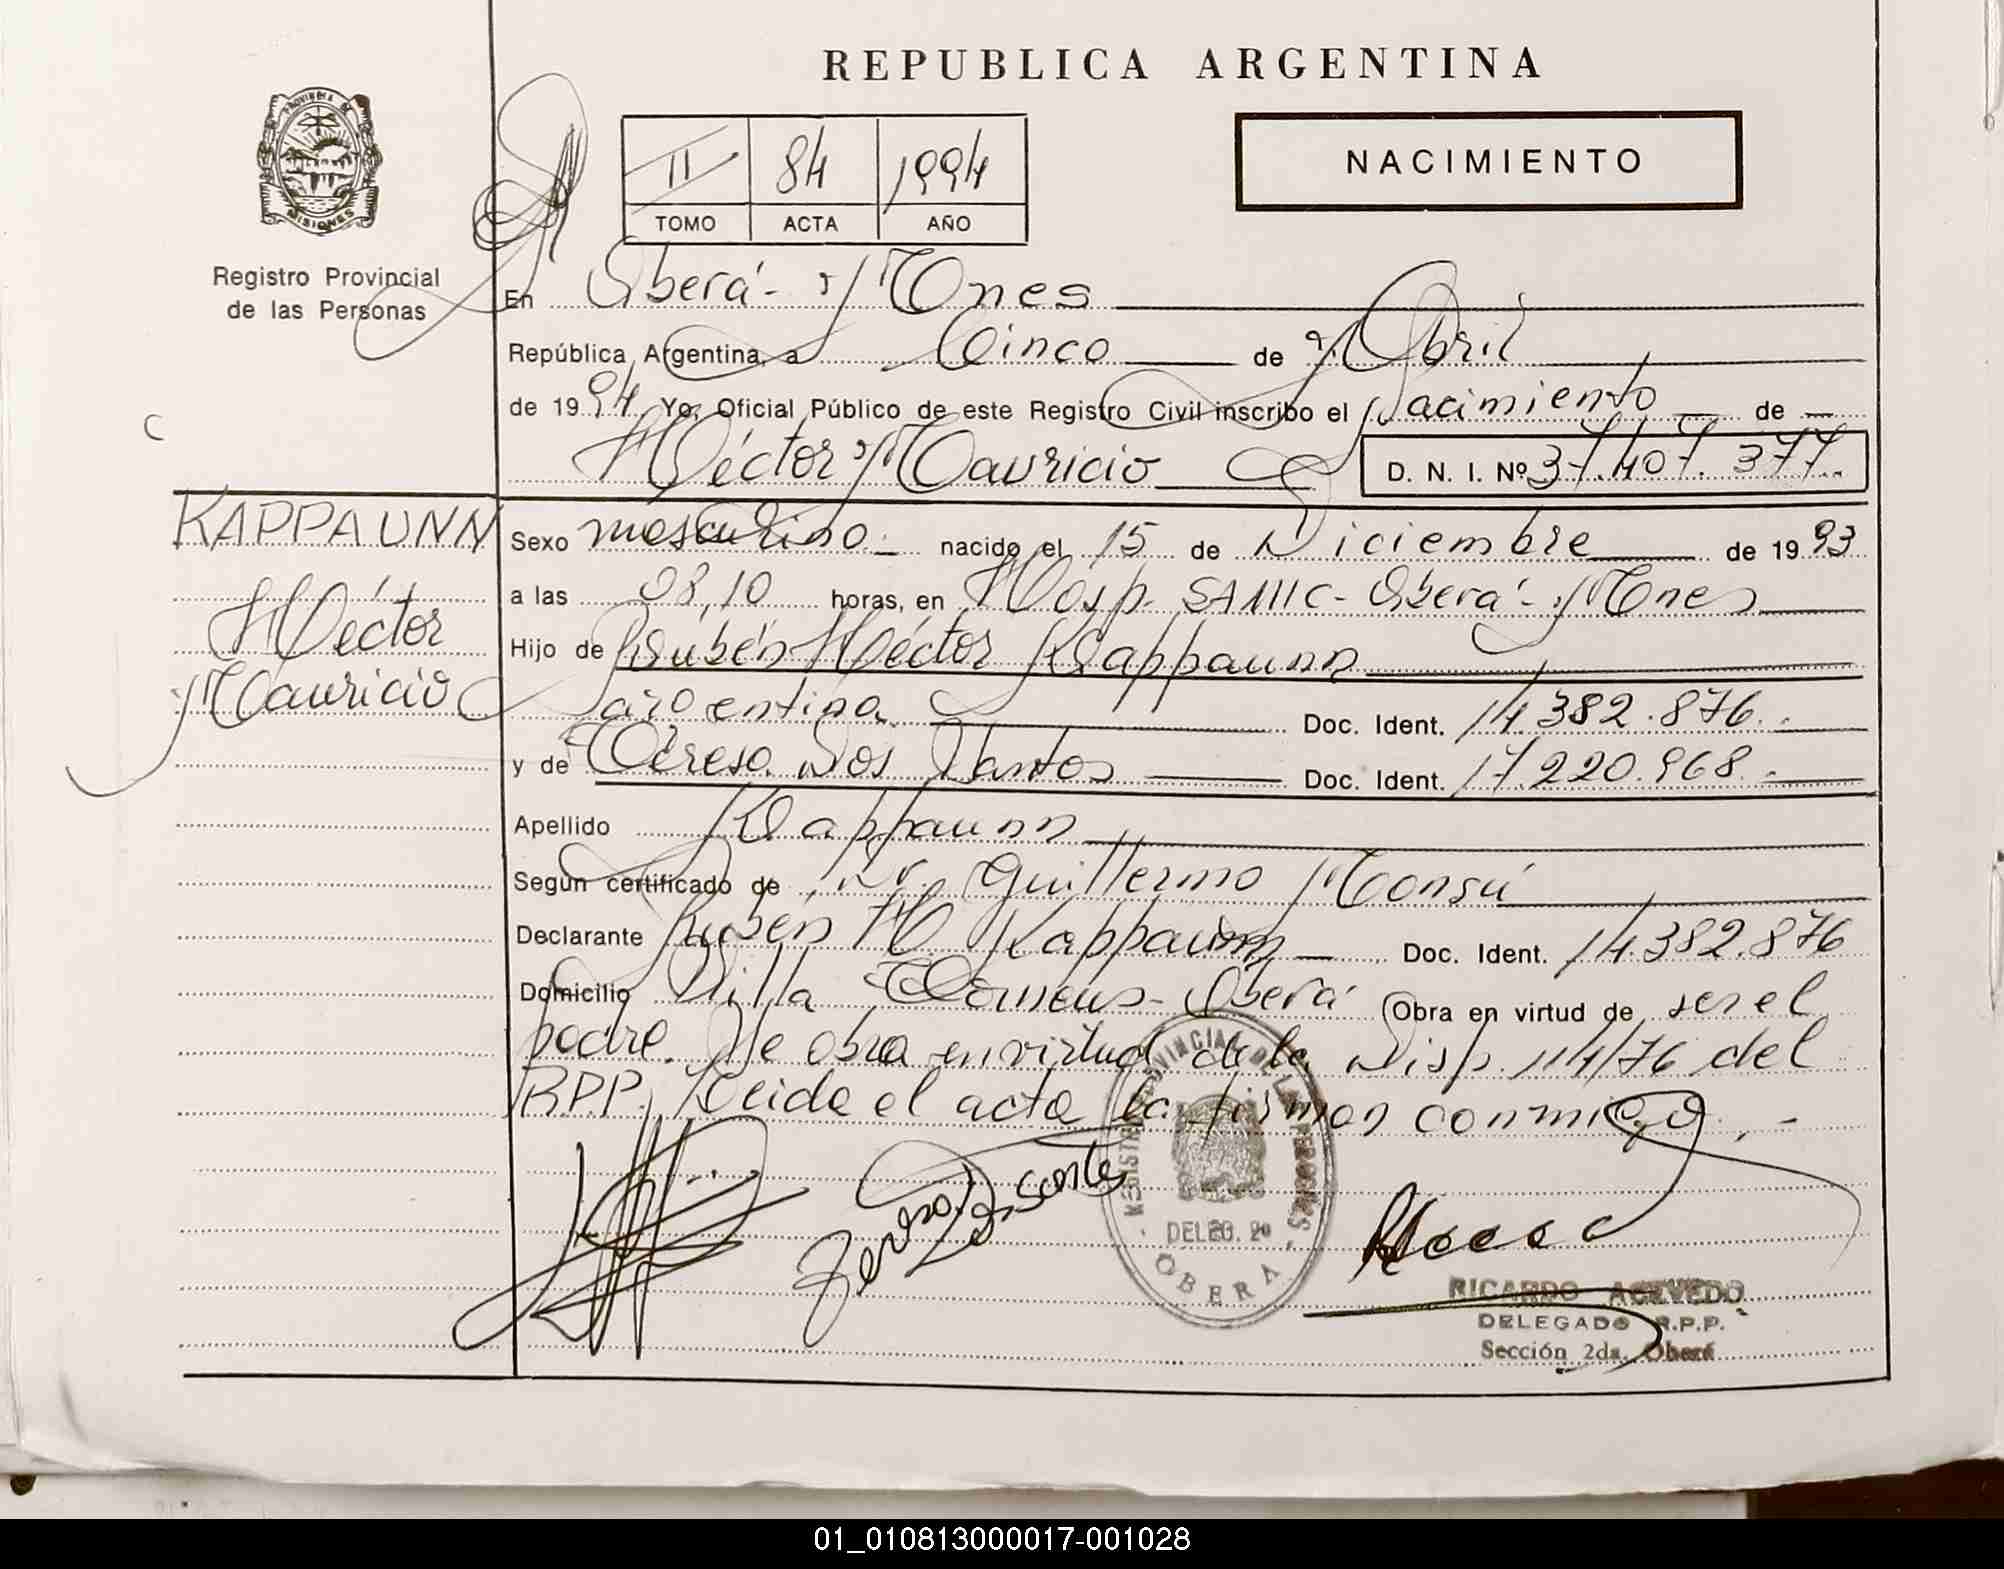 REPUBLICA ARGENTINA
PROVINCIA DE
MISIONES
Registro Provincial
de las Personas
II 84 1994
TOMO ACTA AÑO
NACIMIENTO
En Oberá - Mnes
República Argentina, a Cinco de Abril
de 1994 Yo, Oficial Público de este Registro Civil inscribo el Nacimiento de
Héctor Mauricio D. N. I. Nº 37.407.377.
KAPPAUNN
Héctor
Mauricio
Sexo masculino nacido el 15 de Diciembre de 1993
a las 08,10 horas, en Hosp. SAMIC - Oberá - Mnes
Hijo de Rubén Héctor Kappaunn
argentina Doc. Ident. 14.382.876.
y de Teresa Dos Santos Doc. Ident. 17.220.968.
Apellido Kappaunn
Según certificado de Dr. Guillermo Monsú
Declarante Rubén H Kappaunn Doc. Ident. 14.382.876
Domicilio Villa - Oberá Obra en virtud de ser el
padre. Se obra en virtud de la Disp. 114/76 del
RPP. Leida el acta la firman conmigo.-
REGISTRO PROVINCIAL DE LAS PERSONAS
DELEG. 2ª
OBERA
RICARDO ACEVEDO
DELEGADO R.P.P.
Sección 2da. Oberá
01_010813000017-001028